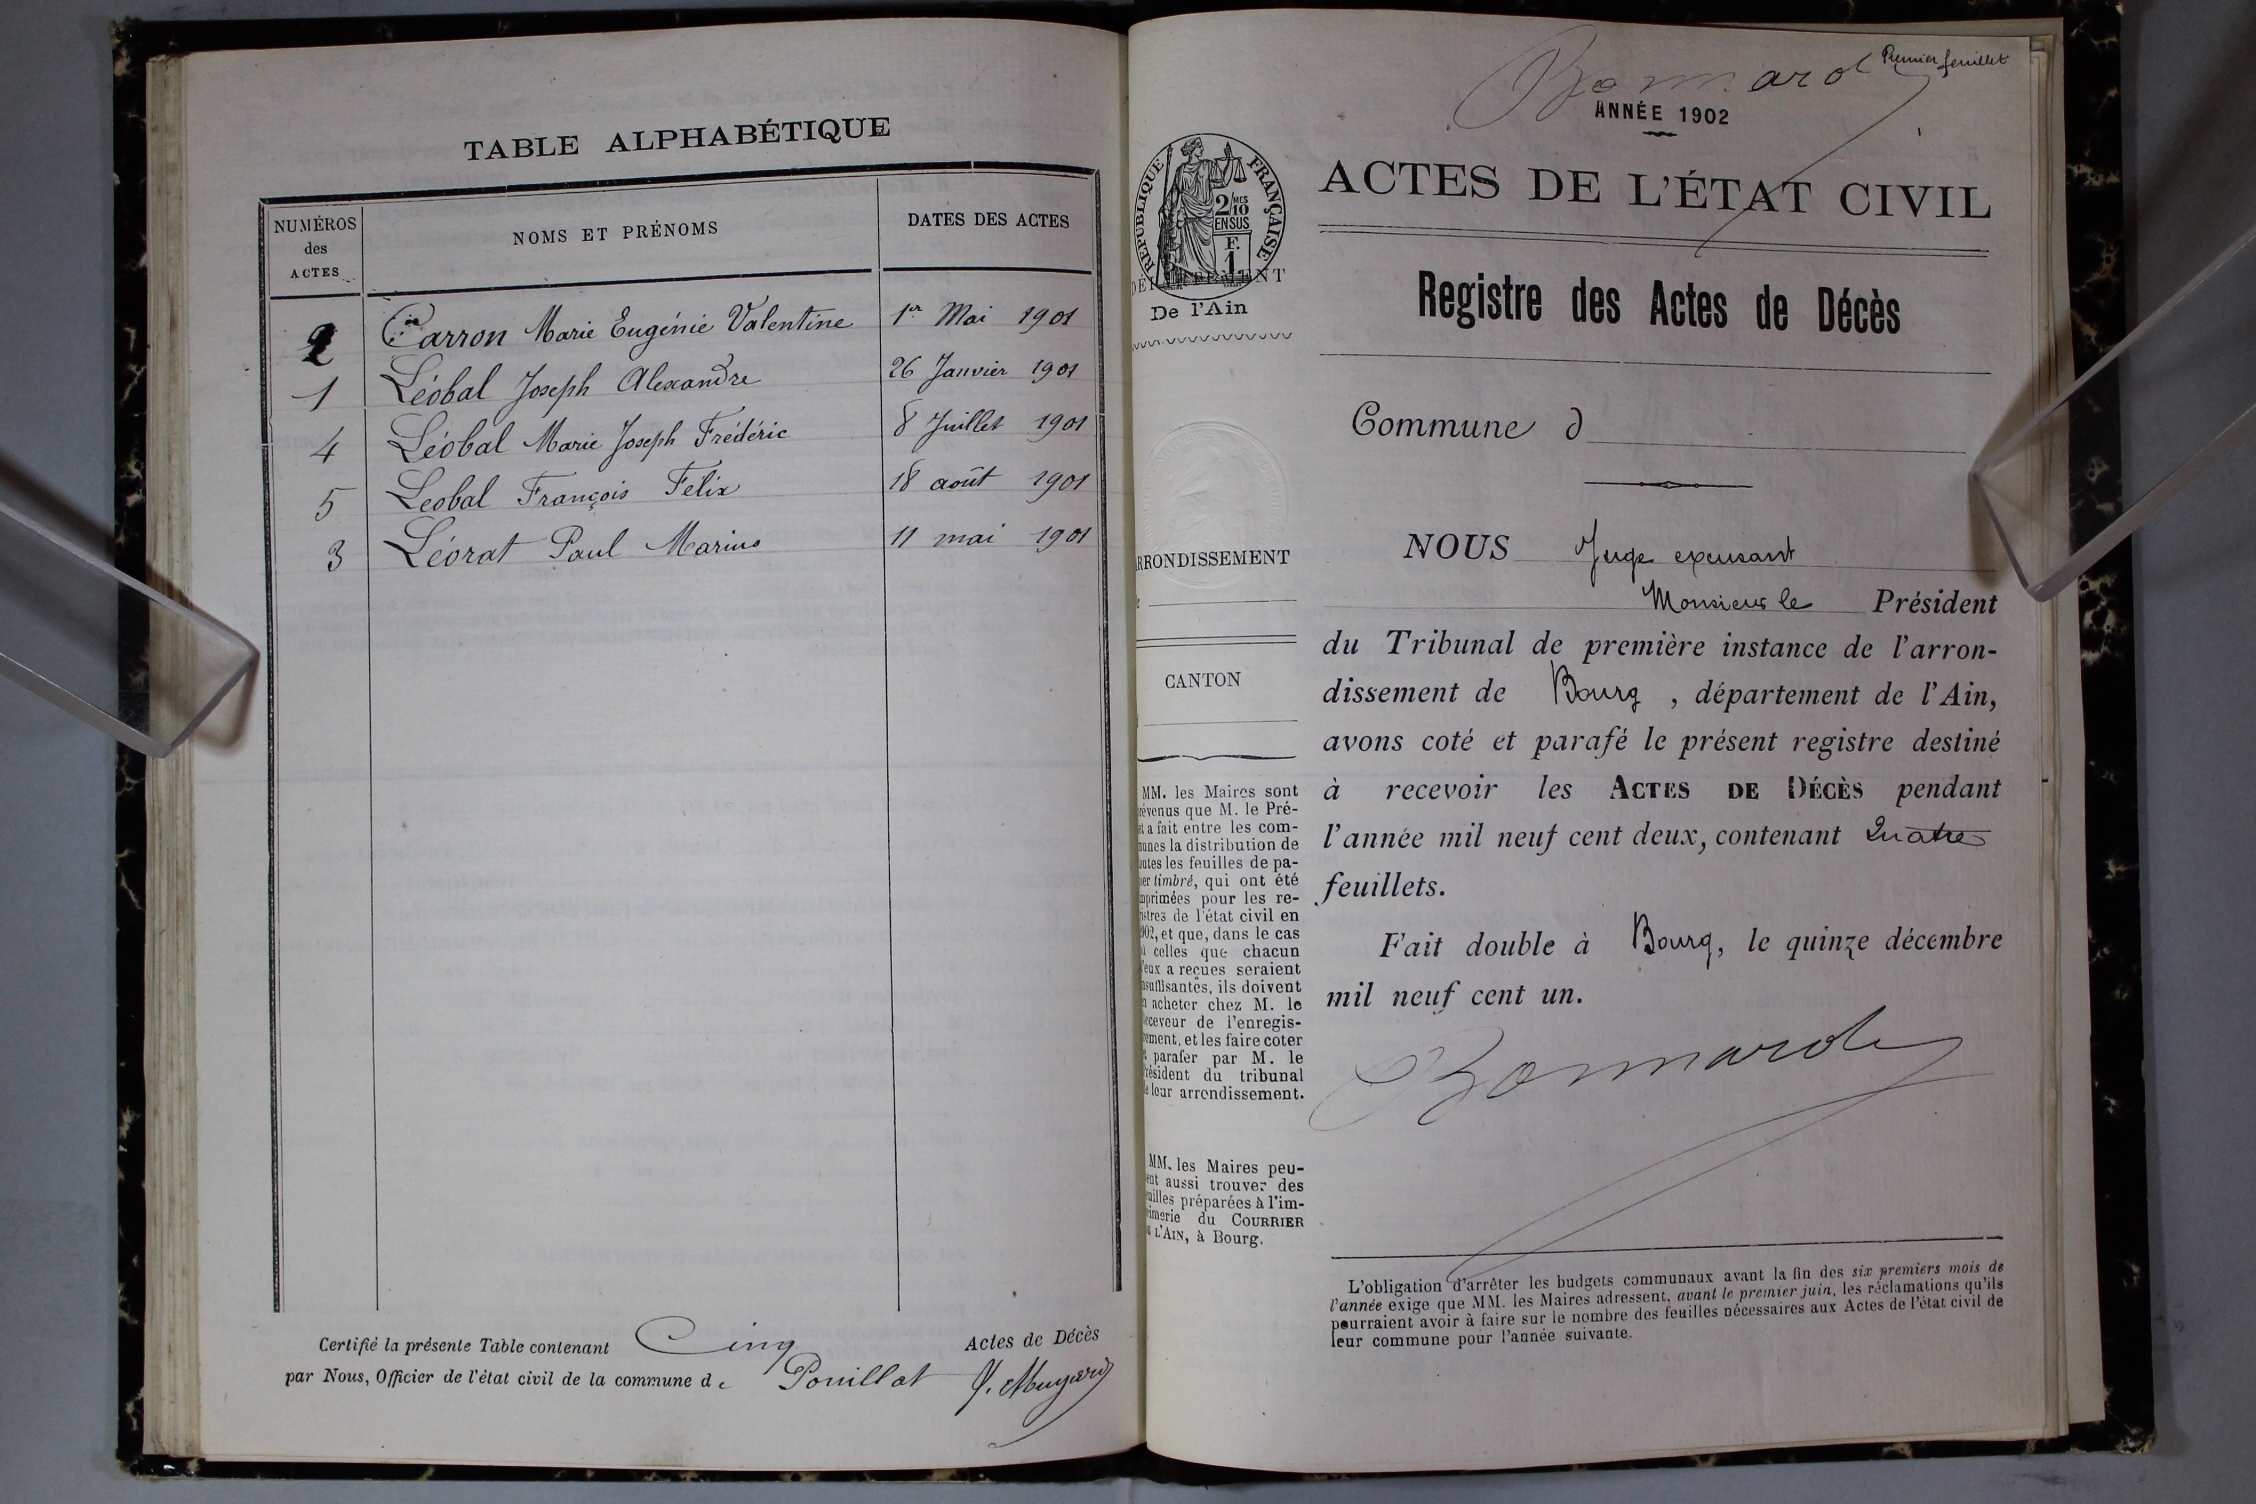 TABLE ALPHABÉTIQUE
NUMÉROS
des
ACTES
NOMS ET PRÉNOMS
DATES DES ACTES
2 Carron Marie Eugénie Valentine 1er Mai 1901
1 Léobal Joseph Alexandre 26 Janvier 1901
4 Léobal Marie Joseph Frédéric 8 Juillet 1901
5 Leobal François Felix 18 août 1901
3 Léorat Paul Marius 11 mai 1901
Certifié la présente Table contenant Cinq Actes de Décès
par Nous, Officier de l'état civil de la commune de Pouillat
Premier feuillet
Bonnard
ANNÉE 1902
ACTES DE L'ÉTAT CIVIL
RÉPUBLIQUE FRANÇAISE
2/10 MES
EN SUS
F.
1
De l'Ain
Registre des Actes de Décès
Commune d
ARRONDISSEMENT
CANTON
NOUS Juge excusant
Monsieur le Président
du Tribunal de première instance de l'arron-
dissement de Bourg, département de l'Ain,
avons coté et parafé le présent registre destiné
à recevoir les ACTES DE DÉCÈS pendant
l'année mil neuf cent deux, contenant Quatre
feuillets.
Fait double à Bourg, le quinze décembre
mil neuf cent un.
Bonnard
MM. les Maires sont
révenus que M. le Pré-
et a fait entre les com-
unes la distribution de
utes les feuilles de pa-
er timbré, qui ont été
mprimées pour les re-
istres de l'état civil en
902, et que, dans le cas
ù celles que chacun
'eux a reçues seraient
nsuffisantes, ils doivent
n acheter chez M. le
eceveur de l'enregis-
ement, et les faire coter
t parafer par M. le
résident du tribunal
e leur arrondissement.
MM. les Maires peu-
ent aussi trouver des
uilles préparées à l'im-
rimerie du COURRIER
E L'AIN, à Bourg.
L'obligation d'arrêter les budgets communaux avant la fin des six premiers mois de
l'année exige que MM. les Maires adressent, avant le premier juin, les réclamations qu'ils
pourraient avoir à faire sur le nombre des feuilles nécessaires aux Actes de l'état civil de
leur commune pour l'année suivante.